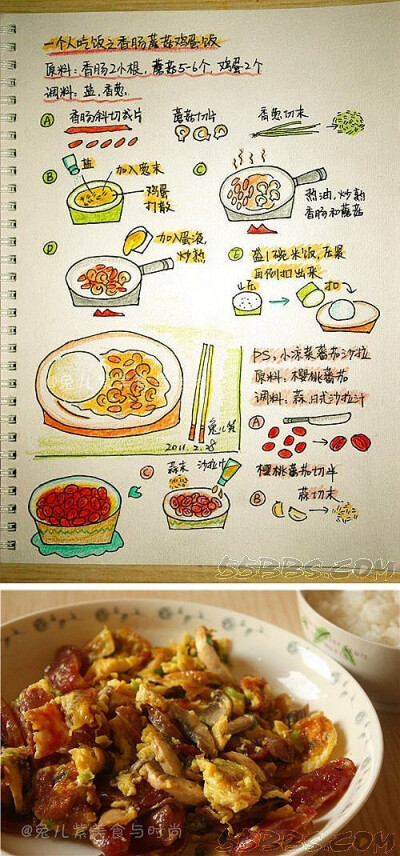 一个人吃饭之香肠蘑菇鸡蛋饭
原料：香肠2小根，蘑菇5-6个，鸡蛋2个
调料：盐，香葱。
A 香肠斜切成片
蘑菇切片
香葱切末
B 盐
加入葱末
鸡蛋打散
C
热油，炒熟
香肠和蘑菇
D
加入蛋液，
炒熟
E 盛1碗米饭，压紧
再倒扣出来
压
扣
@兔儿紫美食与时尚
2011.2.28
PS，小凉菜番茄沙拉
原料：樱桃番茄
调料：蒜，日式沙拉汁
A
樱桃番茄切半
B 蒜切末
C 蒜末 沙拉汁
55BBS.COM
@兔儿紫美食与时尚
55BBS.COM